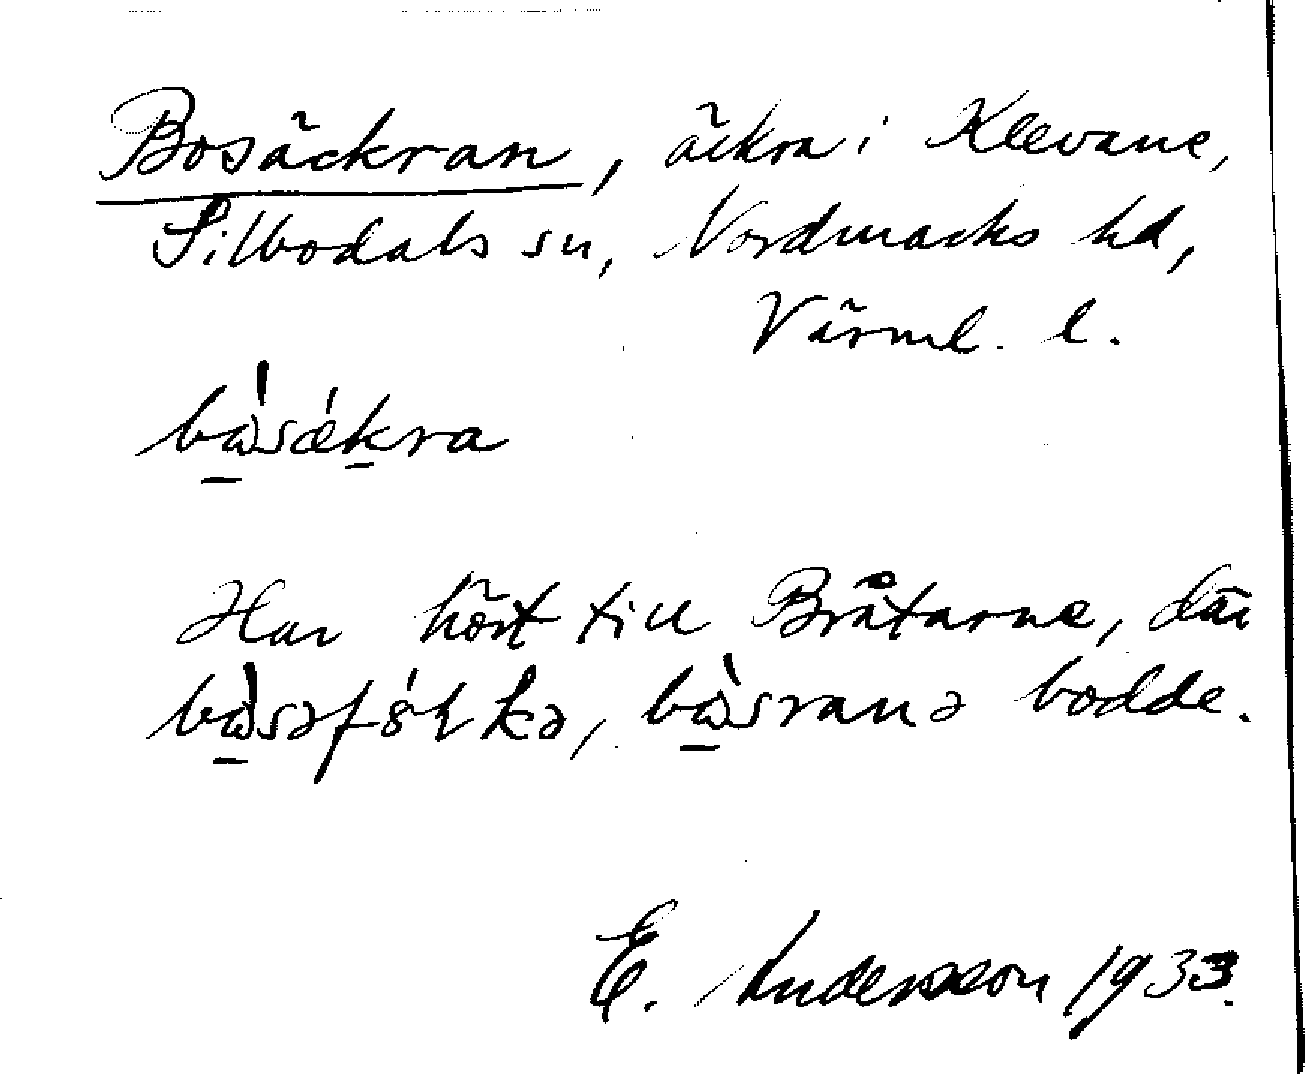 Bosäckran, äckra i Klevane,
Silbodals sn, Nordmarks hd,
Värml. l.
bàsækra
Har hört till Bråtarne, där
bàsəfól̥kə, bàsranə bodde.
E. Andersson 1933.